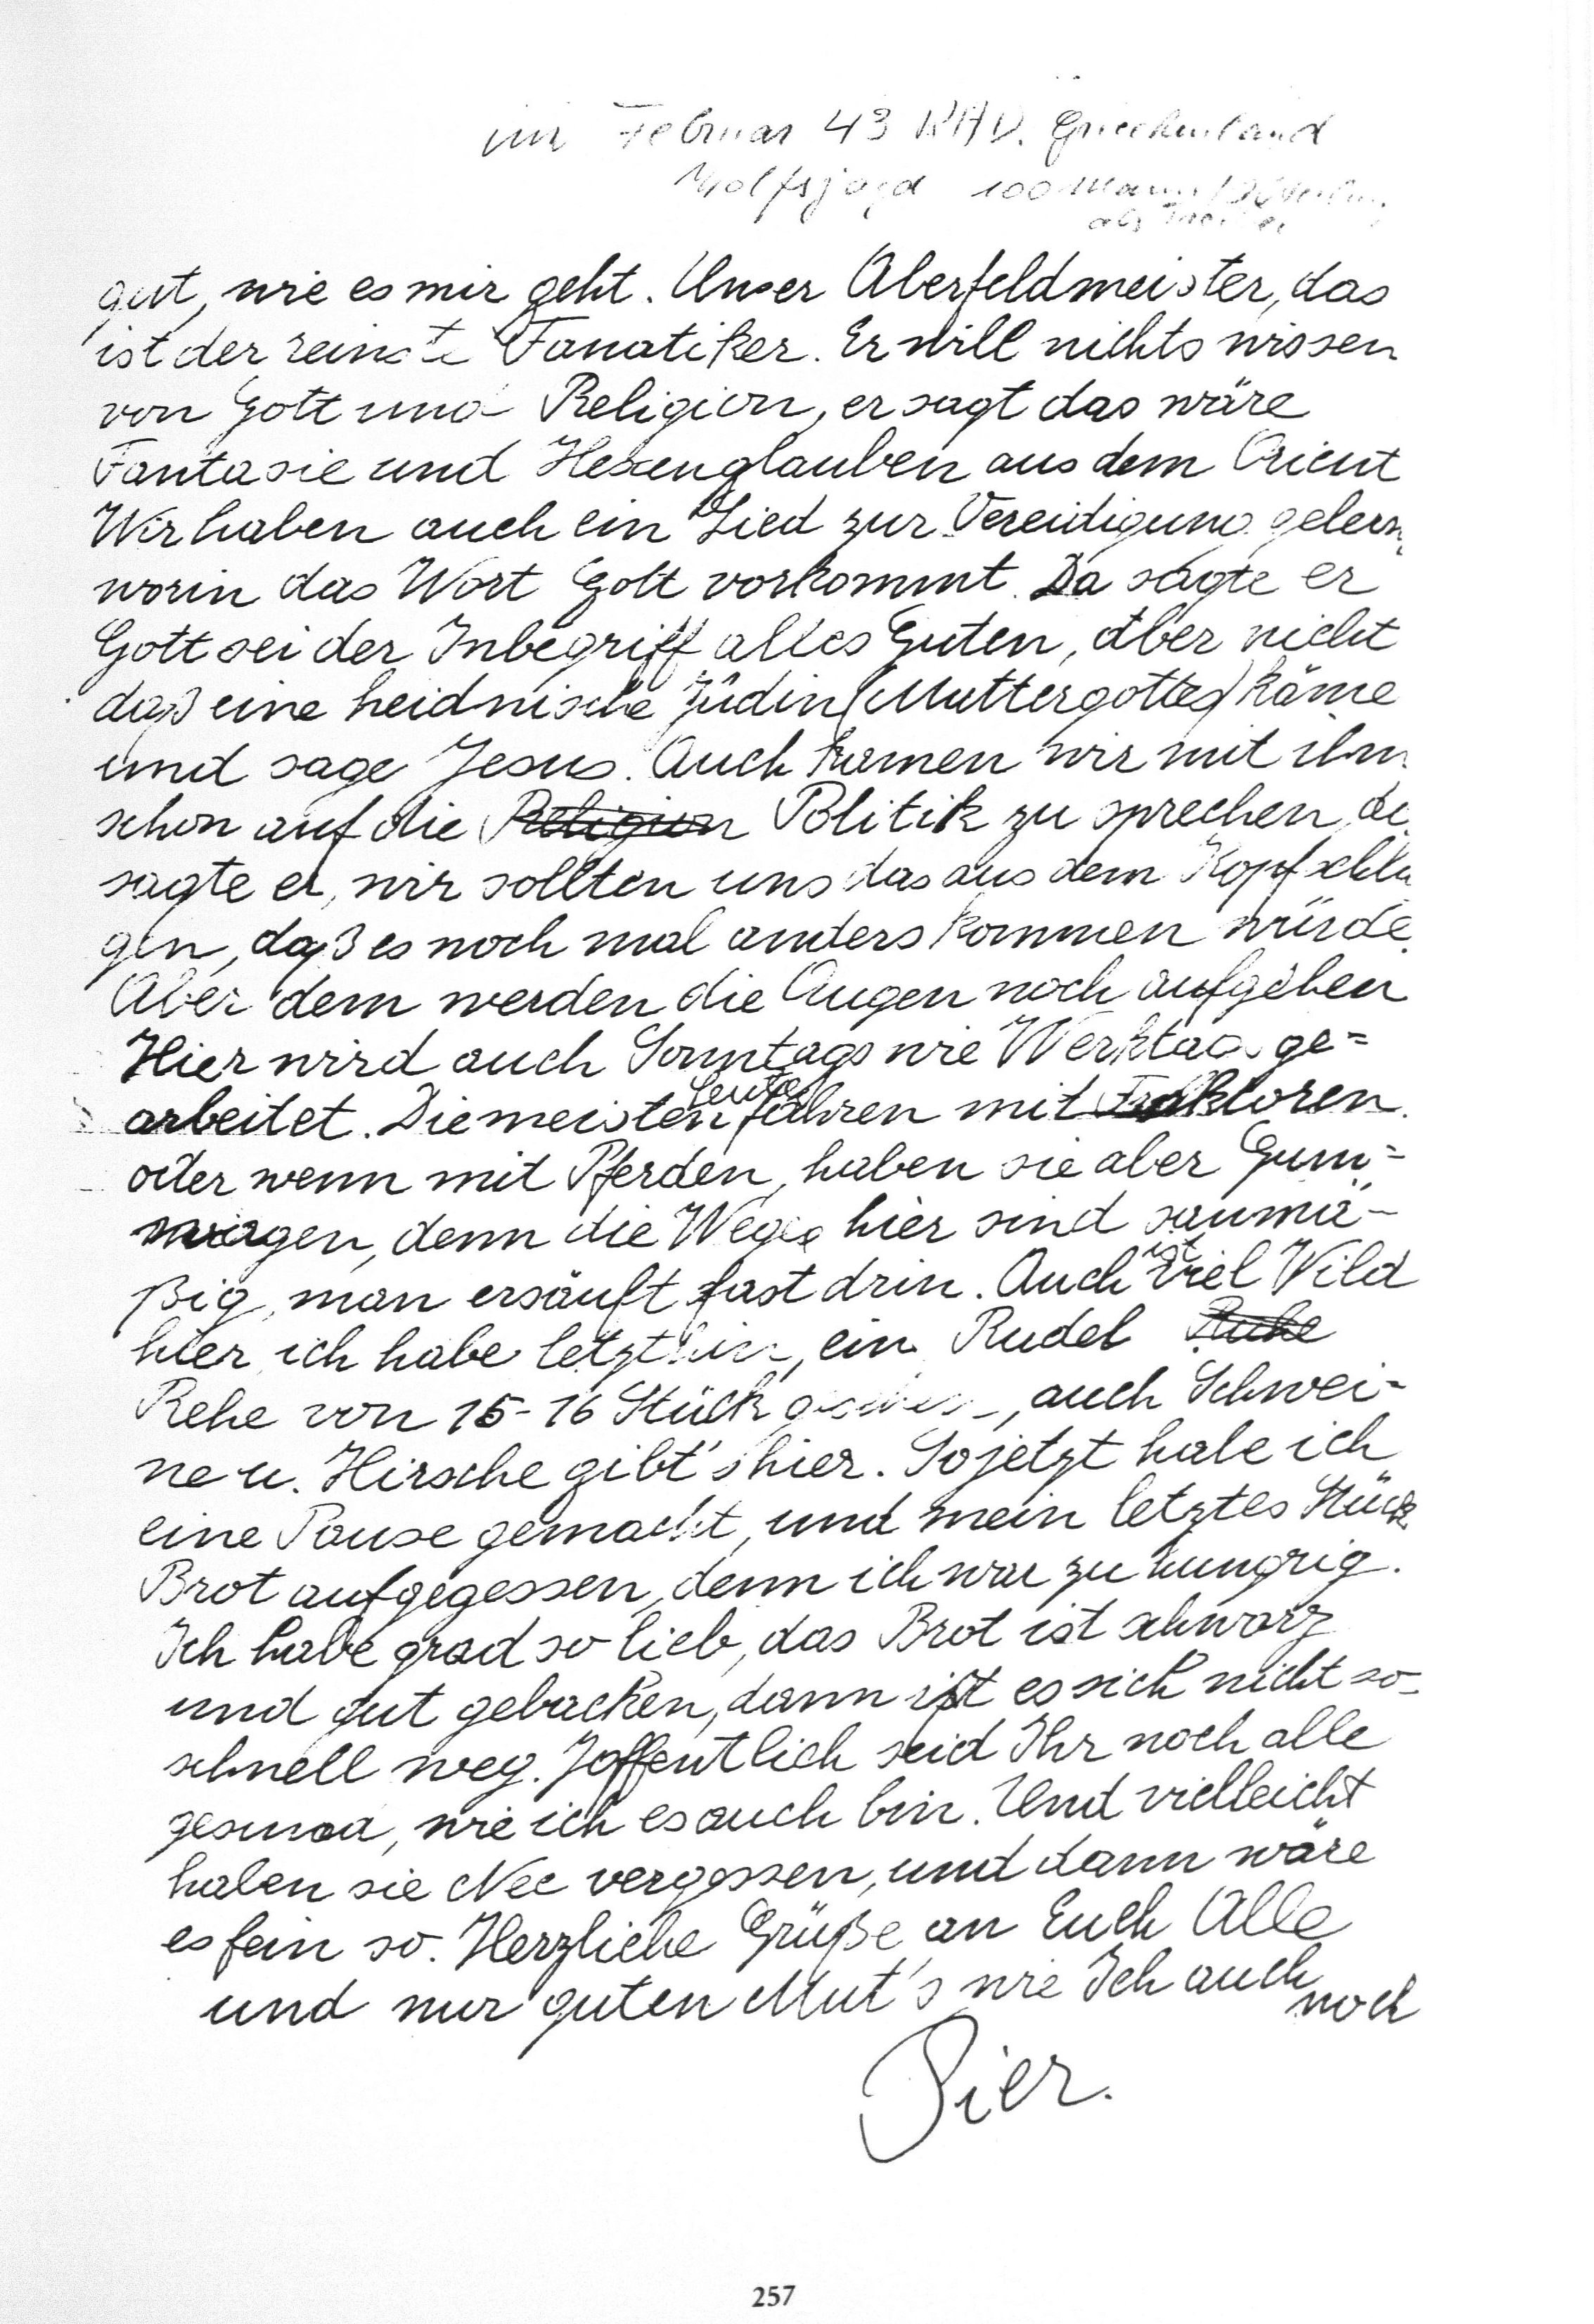 im Februar 43 RAD. Griechenland
Wolfsjagd 100 Mann
als
gut, wie es mir geht. Unser Oberfeldmeister, das
ist der reinste Fanatiker. Er will nichts wissen
von Gott und Religion, er sagt das wäre
Fantasie und Hexenglauben aus dem Orient
Wir haben auch ein Lied zur Vereidigung gelern
worin das Wort Gott vorkommt. Da sagte er
Gott sei der Inbegriff alles Guten, aber nicht
daß eine heidnische Jüdin (Muttergottes) käme
und sage Jesus. Auch kamen wir mit ihm
schon auf die Religion Politik zu sprechen, da
sagte er, wir sollten uns das aus dem Kopf schla
gen, daß es noch mal anders kommen würde.
Aber dem werden die Augen noch aufgehen
Hier wird auch Sonntags wie Werktags ge=
leute
arbeitet. Die meisten fahren mit Traktoren.
oder wenn mit Pferden, haben sie aber Gum=
wagen, denn die Wege hier sind saumä-
ist
ßig, man ersäuft fast drin. Auch viel Wild
hier, ich habe letzthin, ein Rudel Ruhe
Rehe von 15-16 Stück gesehen, auch Schwei-
ne u. Hirsche gibt's hier. So jetzt habe ich
eine Pause gemacht, und mein letztes Stück
Brot aufgegessen, denn ich war zu hungrig.
Ich habe grad so lieb, das Brot ist schwarz
und gut gebacken, dann ißt es sich nicht so-
schnell weg. Hoffentlich seid Ihr noch alle
gesund, wie ich es auch bin. Und vielleicht
haben sie Nec vergessen, und dann wäre
es fein so. Herzliche Grüße an Euch Alle
und nur guten Mut's wie Ich auch
noch
Pier.
257